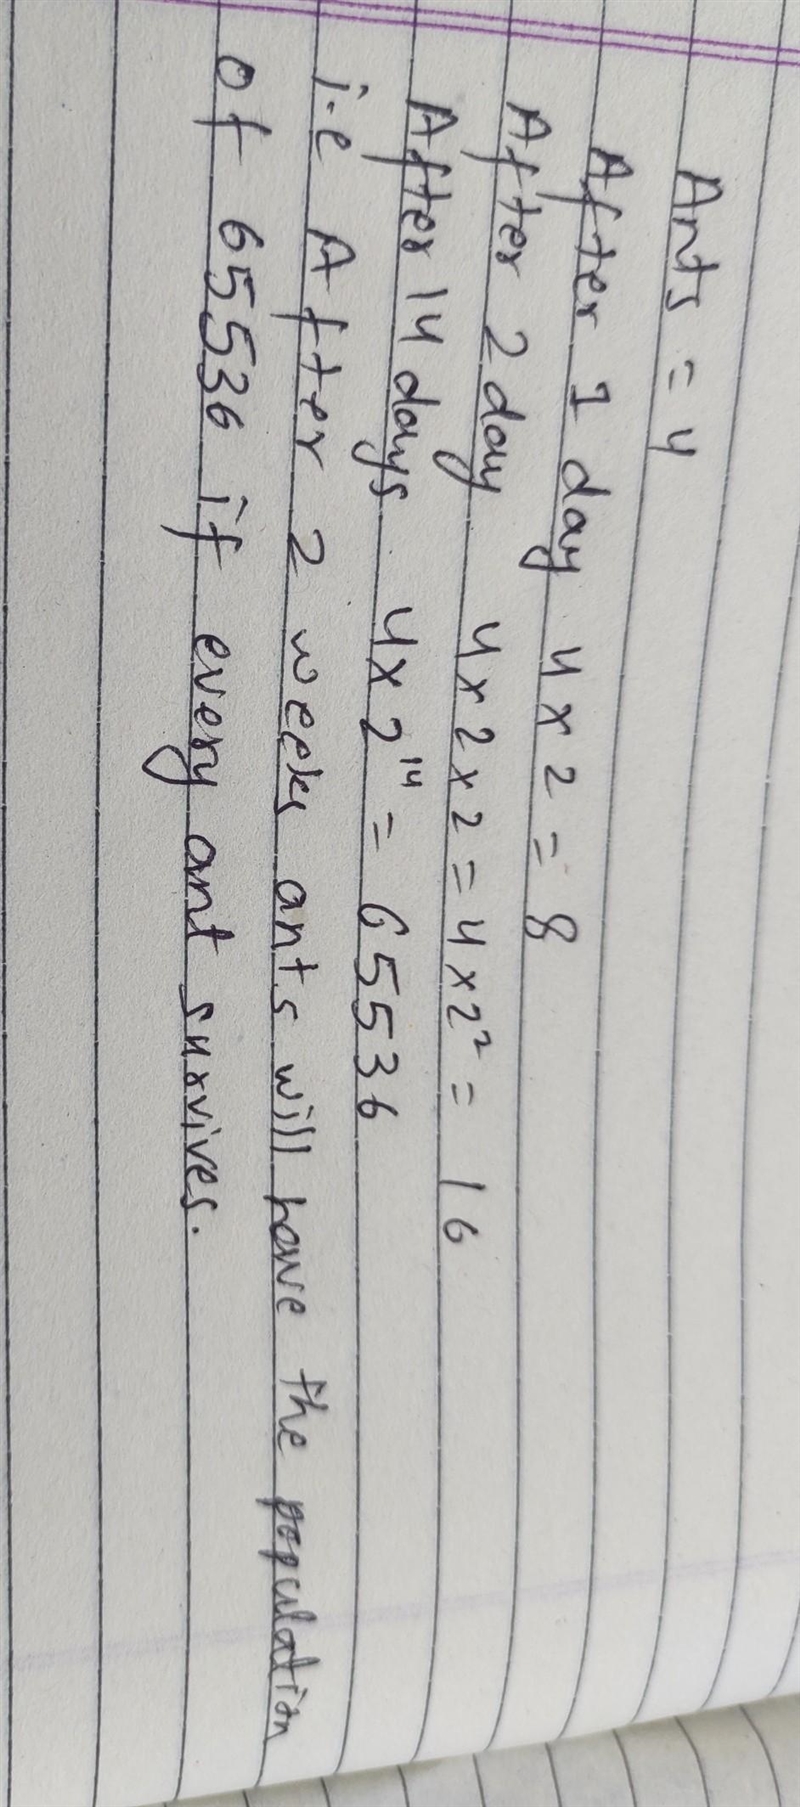 Ants = 4
After 1 day 4 x 2 = 8
After 2 day 4 x 2 x 2 = 4 x 2² = 16
After 14 days 4 x 2¹⁴ = 65536
i.e After 2 weeks ants will have the population
of 65536 if every ant survives.